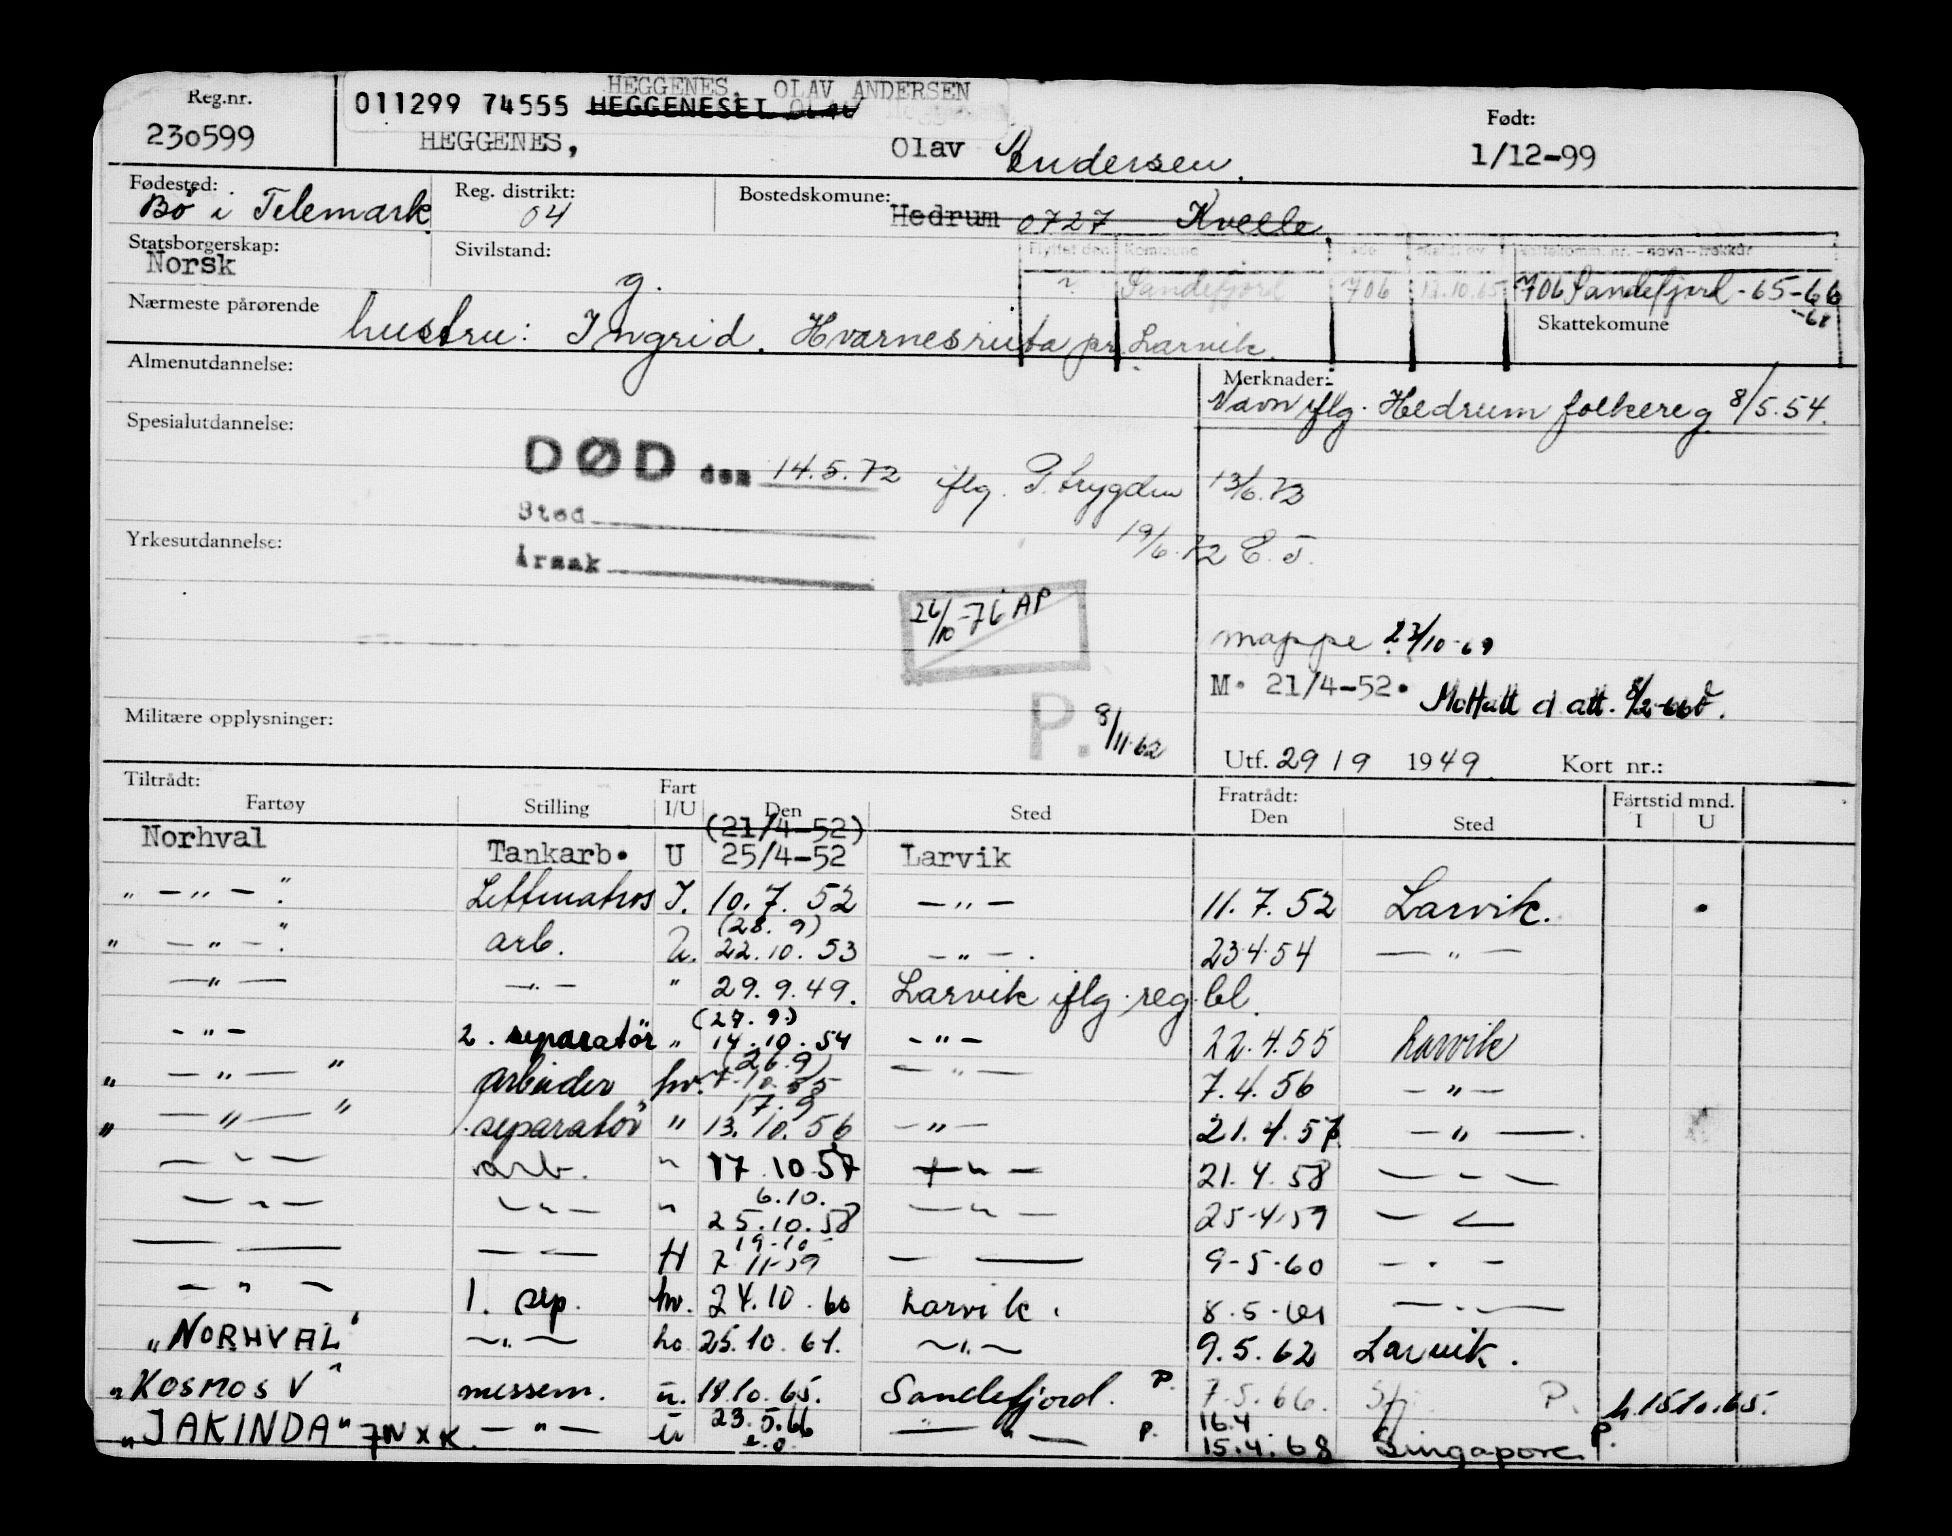 HEGGENES, OLAV ANDERSEN
Reg.nr. 011299 74555 HEGGENESET OLAV Født:
230599 HEGGENES, Olav Andersen. 1/12-99
Fødested: Reg. distrikt: Bostedskomune:
Bø i Telemark 04 Hedrum 0727 Kvelle
Statsborgerskap: Sivilstand: Flyttet den Kommune
Norsk g. Sandefjord 706 12.10.65 706 Sandefjord - 65-66
-68
Nærmeste pårørende Skattekomune
hustru: Ingrid. Hvarnesruta pr. Larvik.
Almenutdannelse: Merknader:
Navn iflg. Hedrum folkereg 8/5.54.
Spesialutdannelse:
DØD den 14.5.72 iflg. P. trygden 13/6.72
Sted
19/6.72 E.J.
Yrkesutdannelse:
Årsak
26/10-76 AP
mappe 27/10-69
M. 21/4-52. Mottatt d att. 8/2-66
Militære opplysninger: P. 8/11.62
Utf. 29/9 1949 Kort nr.:
Tiltrådt: Fart Fratrådt: Fartstid mnd.
Fartøy Stilling I/U Den Sted Den Sted I U
(21/4-52)
Norhval Tankarb. U 25/4-52 Larvik
" - " - " Lettmatros I. 10.7.52 - " - 11.7.52 Larvik.
(28.9)
" - " - " arb. U. 22.10.53 - " - . 23.4.54 - " -
- " - - " - " 29.9.49. Larvik iflg. reg.bl.
(27.9.)
- " - 2. separatør " 14.10.54 - " - 22.4.55 Larvik
(26.9)
" - " - " arbeider hv. 7.10.55 - " - 7.4.56 - " -
17.9
" - " - " separatør " 13.10.56 - " - 21.4.57 - " - .
- " - arb. " 17.10.57 - " - 21.4.58 - - -
6.10.
- " - - " - " 25.10.58 - " - 25-4-59 - -
19-10
- - - - H 7-11-59 - - 9-5-60 - . -
- " - 1. sep. hv. 24.10.60 Larvik. 8.5-61 - . -
"NORHVAL" - " - hv. 25.10.61. - " - 9.5.62 Larvik.
"KOSMOS V" messem. u. 18.10.65. Sandefjord. P. 7.5.66. Sfj. P. h.15.10.65.
"JAKINDA" JWXK. - " - u 23.5.66 - " - P. 16.4
e.o. 15.4.68 Singapore. P.